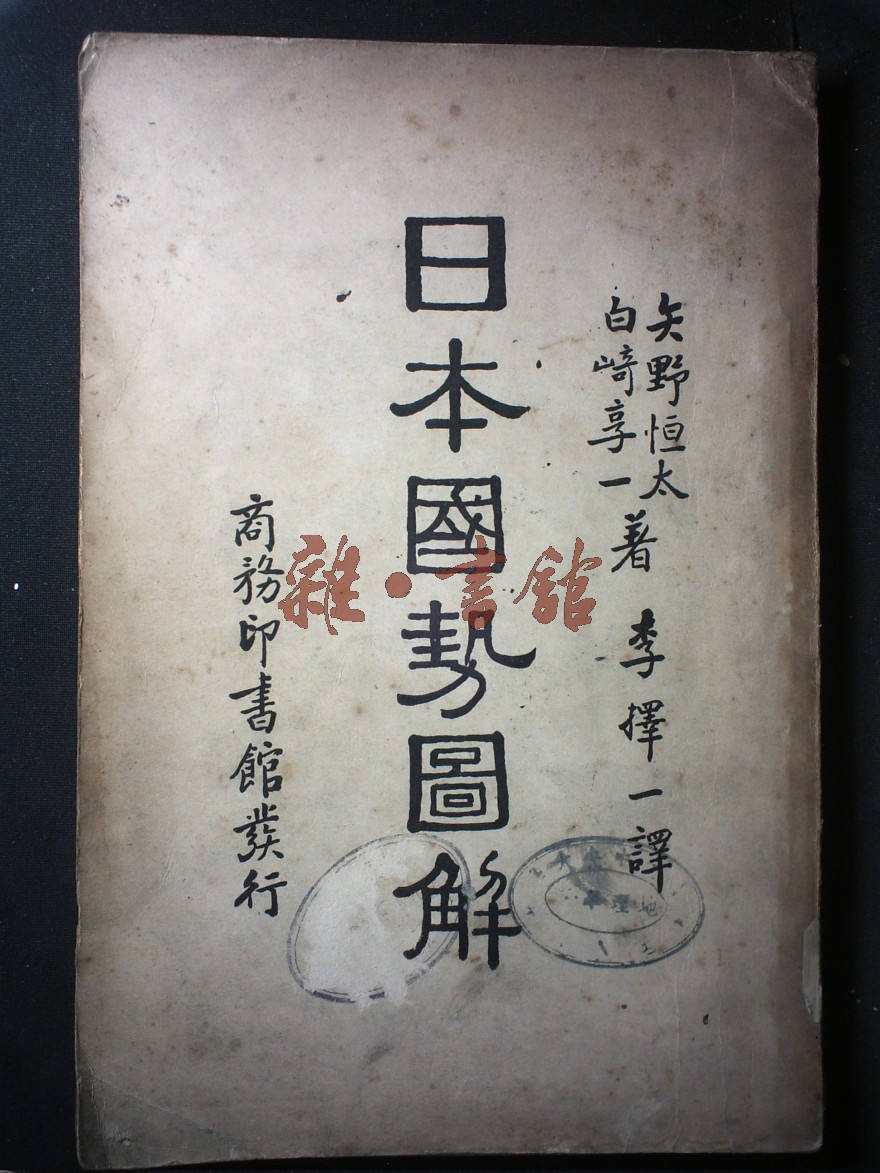 矢野恒太
白﨑享一
著
李擇一譯
日本國勢圖解
商務印書館發行
雜·書館
地理